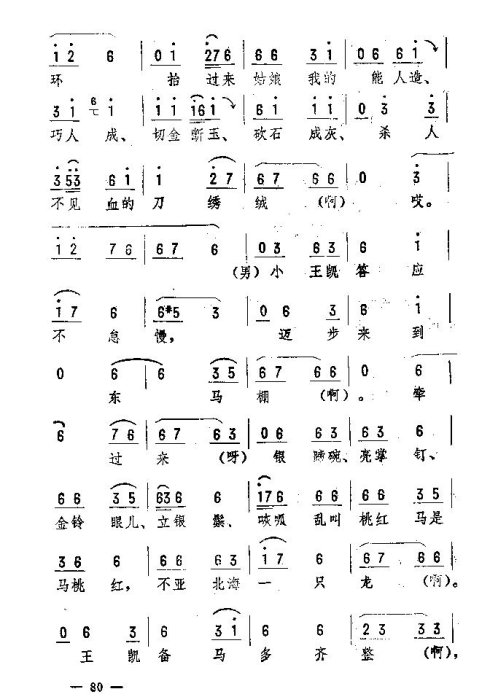 环 抬 过来 姑娘 我的 能 人造、
巧人 成、 切金 断玉、 砍石 成灰、 杀 人
不见 血的 刀 绣 绒 (啊) 哎。
(男) 小 王凯 答 应
不 怠 慢, 迈 步 来 到
东 马 棚 (啊)。 牵
过 来 (呀) 银 蹄碗、 亮掌 钉、
金铃 眼儿、 立银 鬃、 咴呱 乱叫 桃红 马是
马桃 红, 不亚 北海 一 只 龙 (啊)。
王 凯 备 马 多 齐 整 (啊),
— 80 —